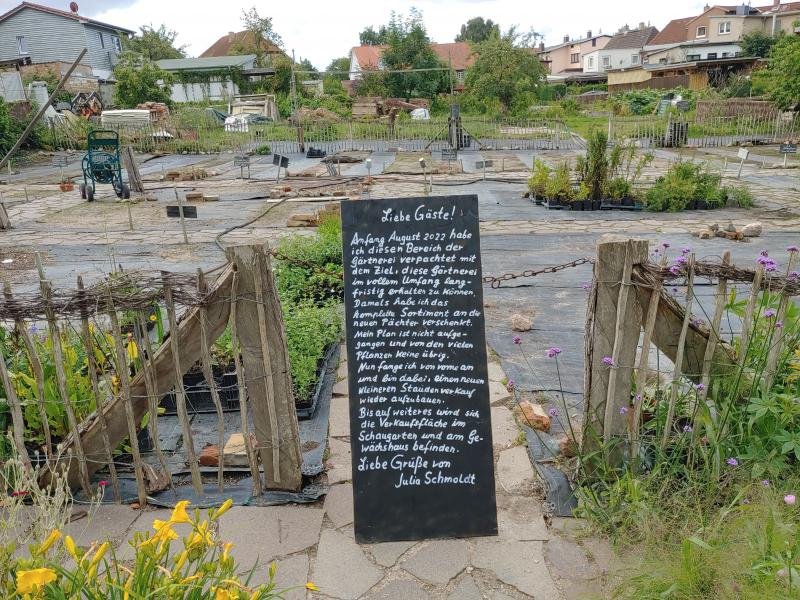 Liebe Gäste!
Anfang August 2022 habe
ich diesen Bereich der
Gärtnerei verpachtet mit
dem Ziel, diese Gärtnerei
im vollem Umfang lang-
fristig erhalten zu können.
Damals habe ich das
komplette Sortiment an die
neuen Pächter verschenkt.
Mein Plan ist nicht aufge-
gangen und von den vielen
Pflanzen keine übrig.
Nun fange ich von vorne an
und bin dabei, einen neuen
kleineren Stauden verkauf
wieder aufzubauen.
Bis auf weiteres wird sich
die Verkaufsfläche im
Schaugarten und am Ge-
wächshaus befinden.
Liebe Grüße von
Julia Schmoldt